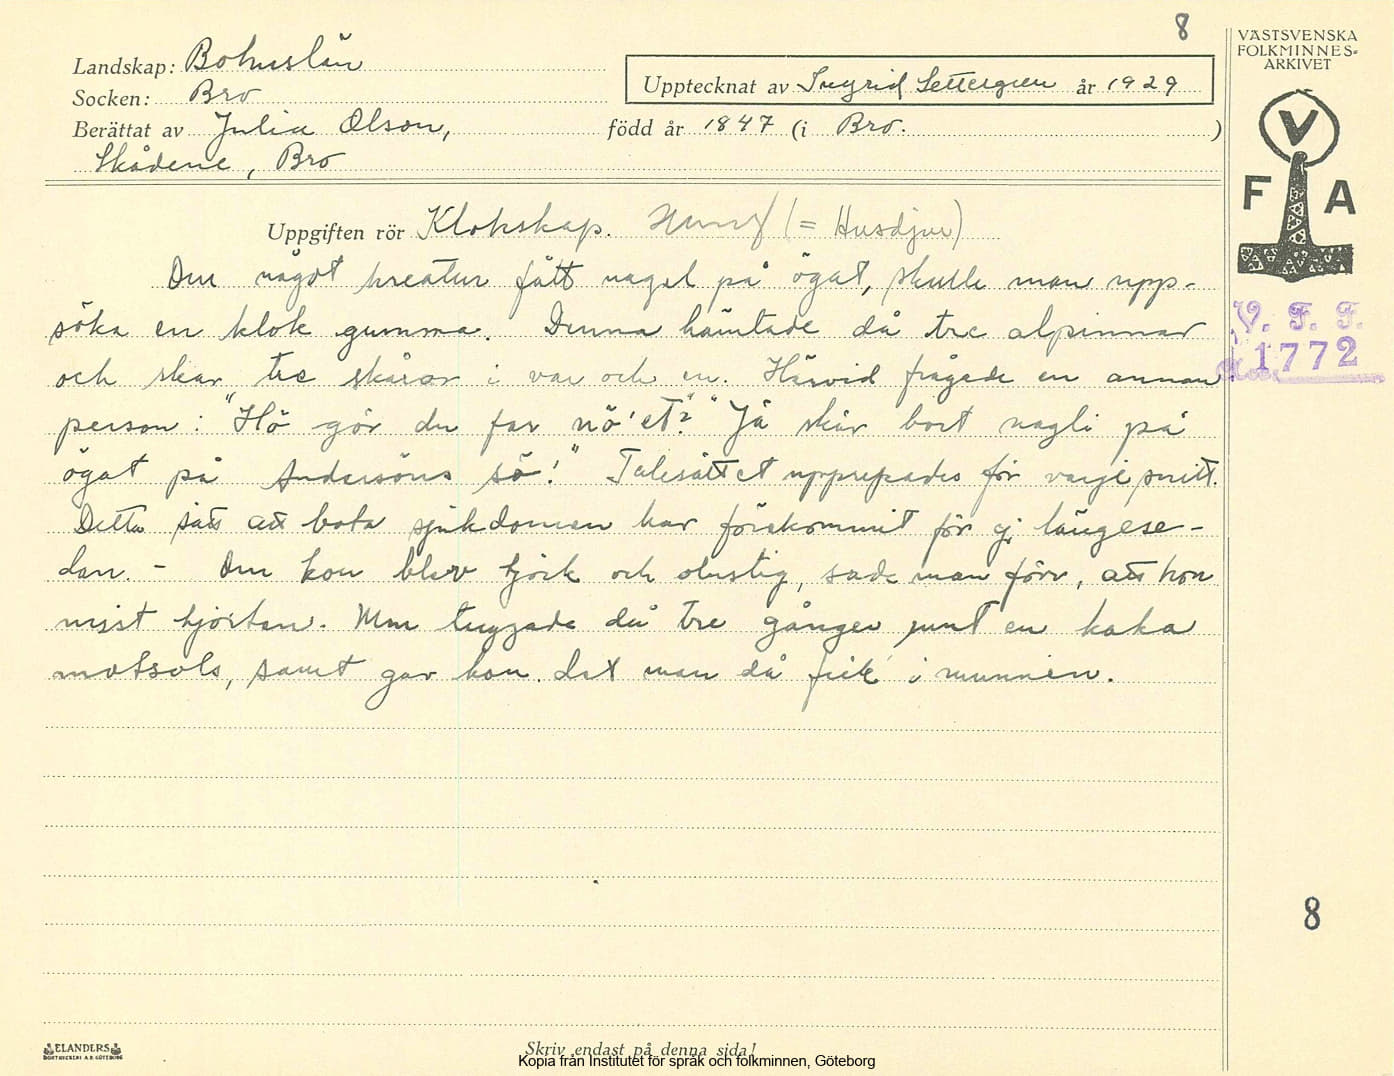 8
VÄSTSVENSKA
FOLKMINNES-
ARKIVET
Landskap: Bohuslän
Socken: Bro
Upptecknat av Ingrid Settergren år 1929
Berättat av Julia Olson, född år 1847 (i Bro. )
Skådene, Bro
V
F A
Uppgiften rör Klokskap. (= Husdjur)
Om något kreatur fått nagel på ögat, skulle man upp-
söka en klok gumma. Denna hämtade då tre alpinnar
och skar tre skåror i var och en. Härvid frågade en annan
person: "Hö gör du far nö'et?" "Jå skär bort nagli på
ögat på Andersöns sö!" Talesättet upprepades för varje snitt.
Detta sätt att bota sjukdomen har förekommit för ej längese-
dan. - Om kon blev sjuk och olustig, sade man förr, att hon
misst hjortan. Man tuggade då tre gånger runt en kaka
motsols, samt gav kon det man då fick i munnen.
V. F. F.
1772
8
ELANDERS
BOKTRYCKERI A.B. GÖTEBORG
Skriv endast på denna sida!
Kopia från Institutet för språk och folkminnen, Göteborg